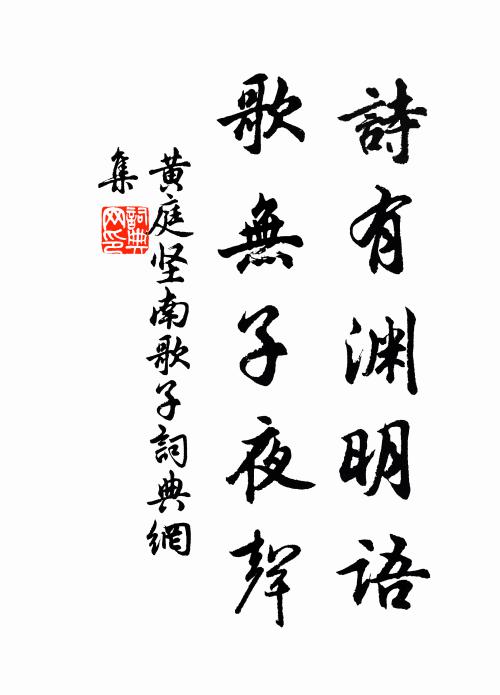 詩有渊明語
歌無子夜聲
黄庭坚南歌子詞典網
集
詞典
网印